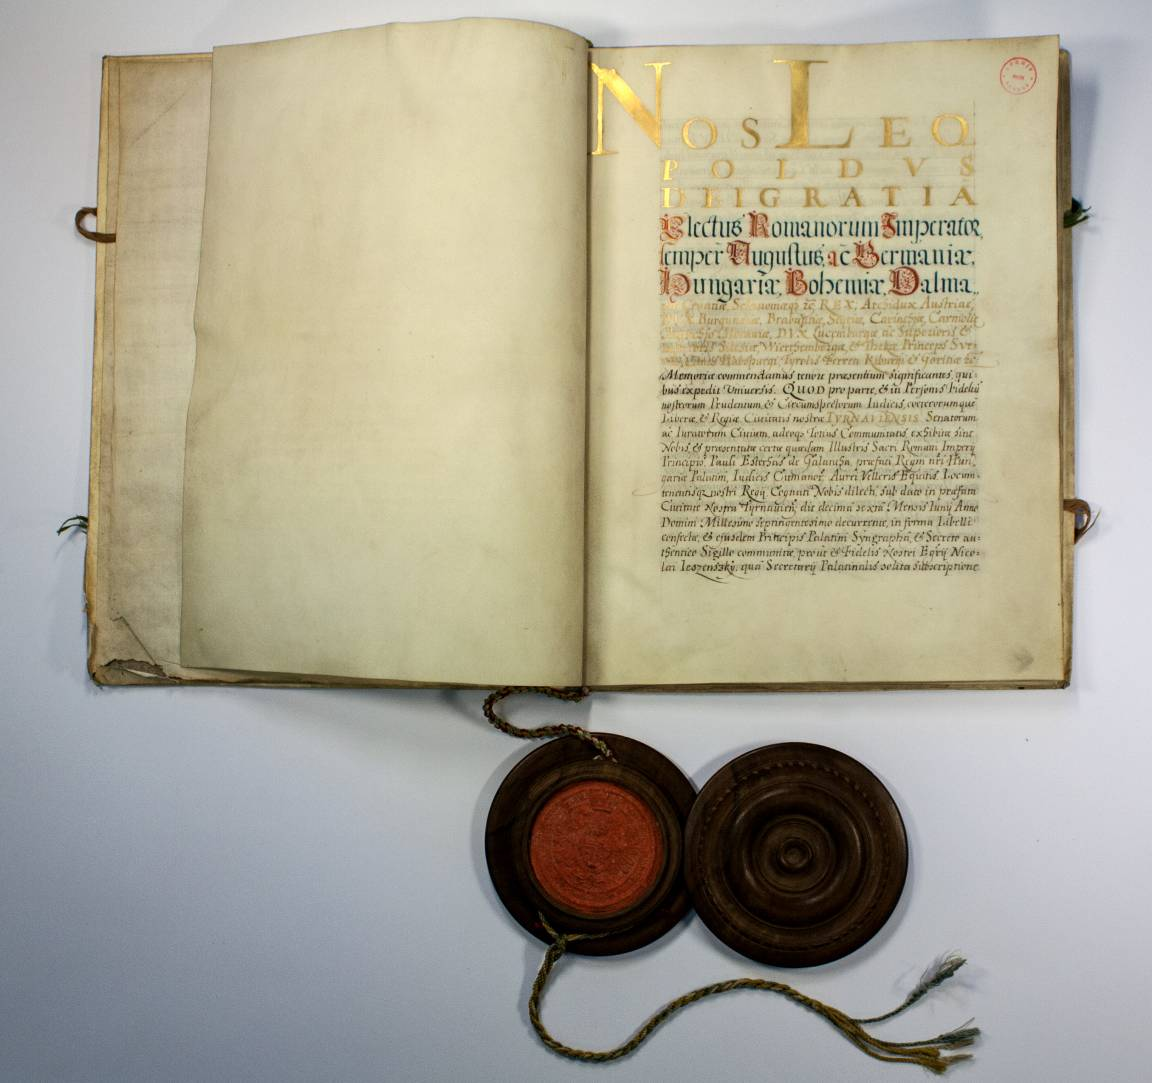 NOS LEO
POLDVS
DEI GRATIA
Electus Romanorum Imperator,
semper Augustus, ac Germaniæ,
Hungariæ, Bohemiæ, Dalma,,
Croatiæ, Sclavoniæq3 REX, Archidux Austriæ,
Burgundiæ, Brabantiæ, Styriæ, Carinthiæ, Carniolæ
Moraviæ, DVX Lucemburgæ ac Superioris &
Silesiæ, Wierthembergæ, & Thekæ, Princeps Sve,,
Habspurgi, Tyrolis, Ferreti, Kiburgi & Goritiæ
Memoriæ commendamus tenore præsentium significantes, qui,,
bus expedit Universis. QUOD pro parte, & in Personis Fidelium
nostrorum Prudentum, & Circumspectorum Iudicis, cæterorumque
Liberæ, & Regiæ Civitatis nostræ TYRNAVIENSIS Senatorum
ac Iuratorum Civium, adeoq3 Totius Communitatis exhibitæ sint
Nobis, & præsentatæ certæ quædam Illustris Sacri Romani Imperij
Principis, Pauli Esterhas de Galantha, præfati Regni nri Hun,,
gariæ Palatini, Iudicis Cumanor, Aurei Velleris Equitis, Locum,,
tenentisq3 nostri Regij, Cognati Nobis dilecti, sub dato in præfata
Civitate Nostra Tyrnavien, die decima sexta Mensis Iunij Anno
Domini Millesimo septingentesimo decurrente, in forma Libelli
confectæ, & ejusdem Principis Palatini Syngrapha, & Secreto au,,
thentico Sigillo communitæ, prout & Fidelis Nostri Egrij Nico,,
lai Ieszenszky, qua Secretarij Palatinalis solita subscriptione